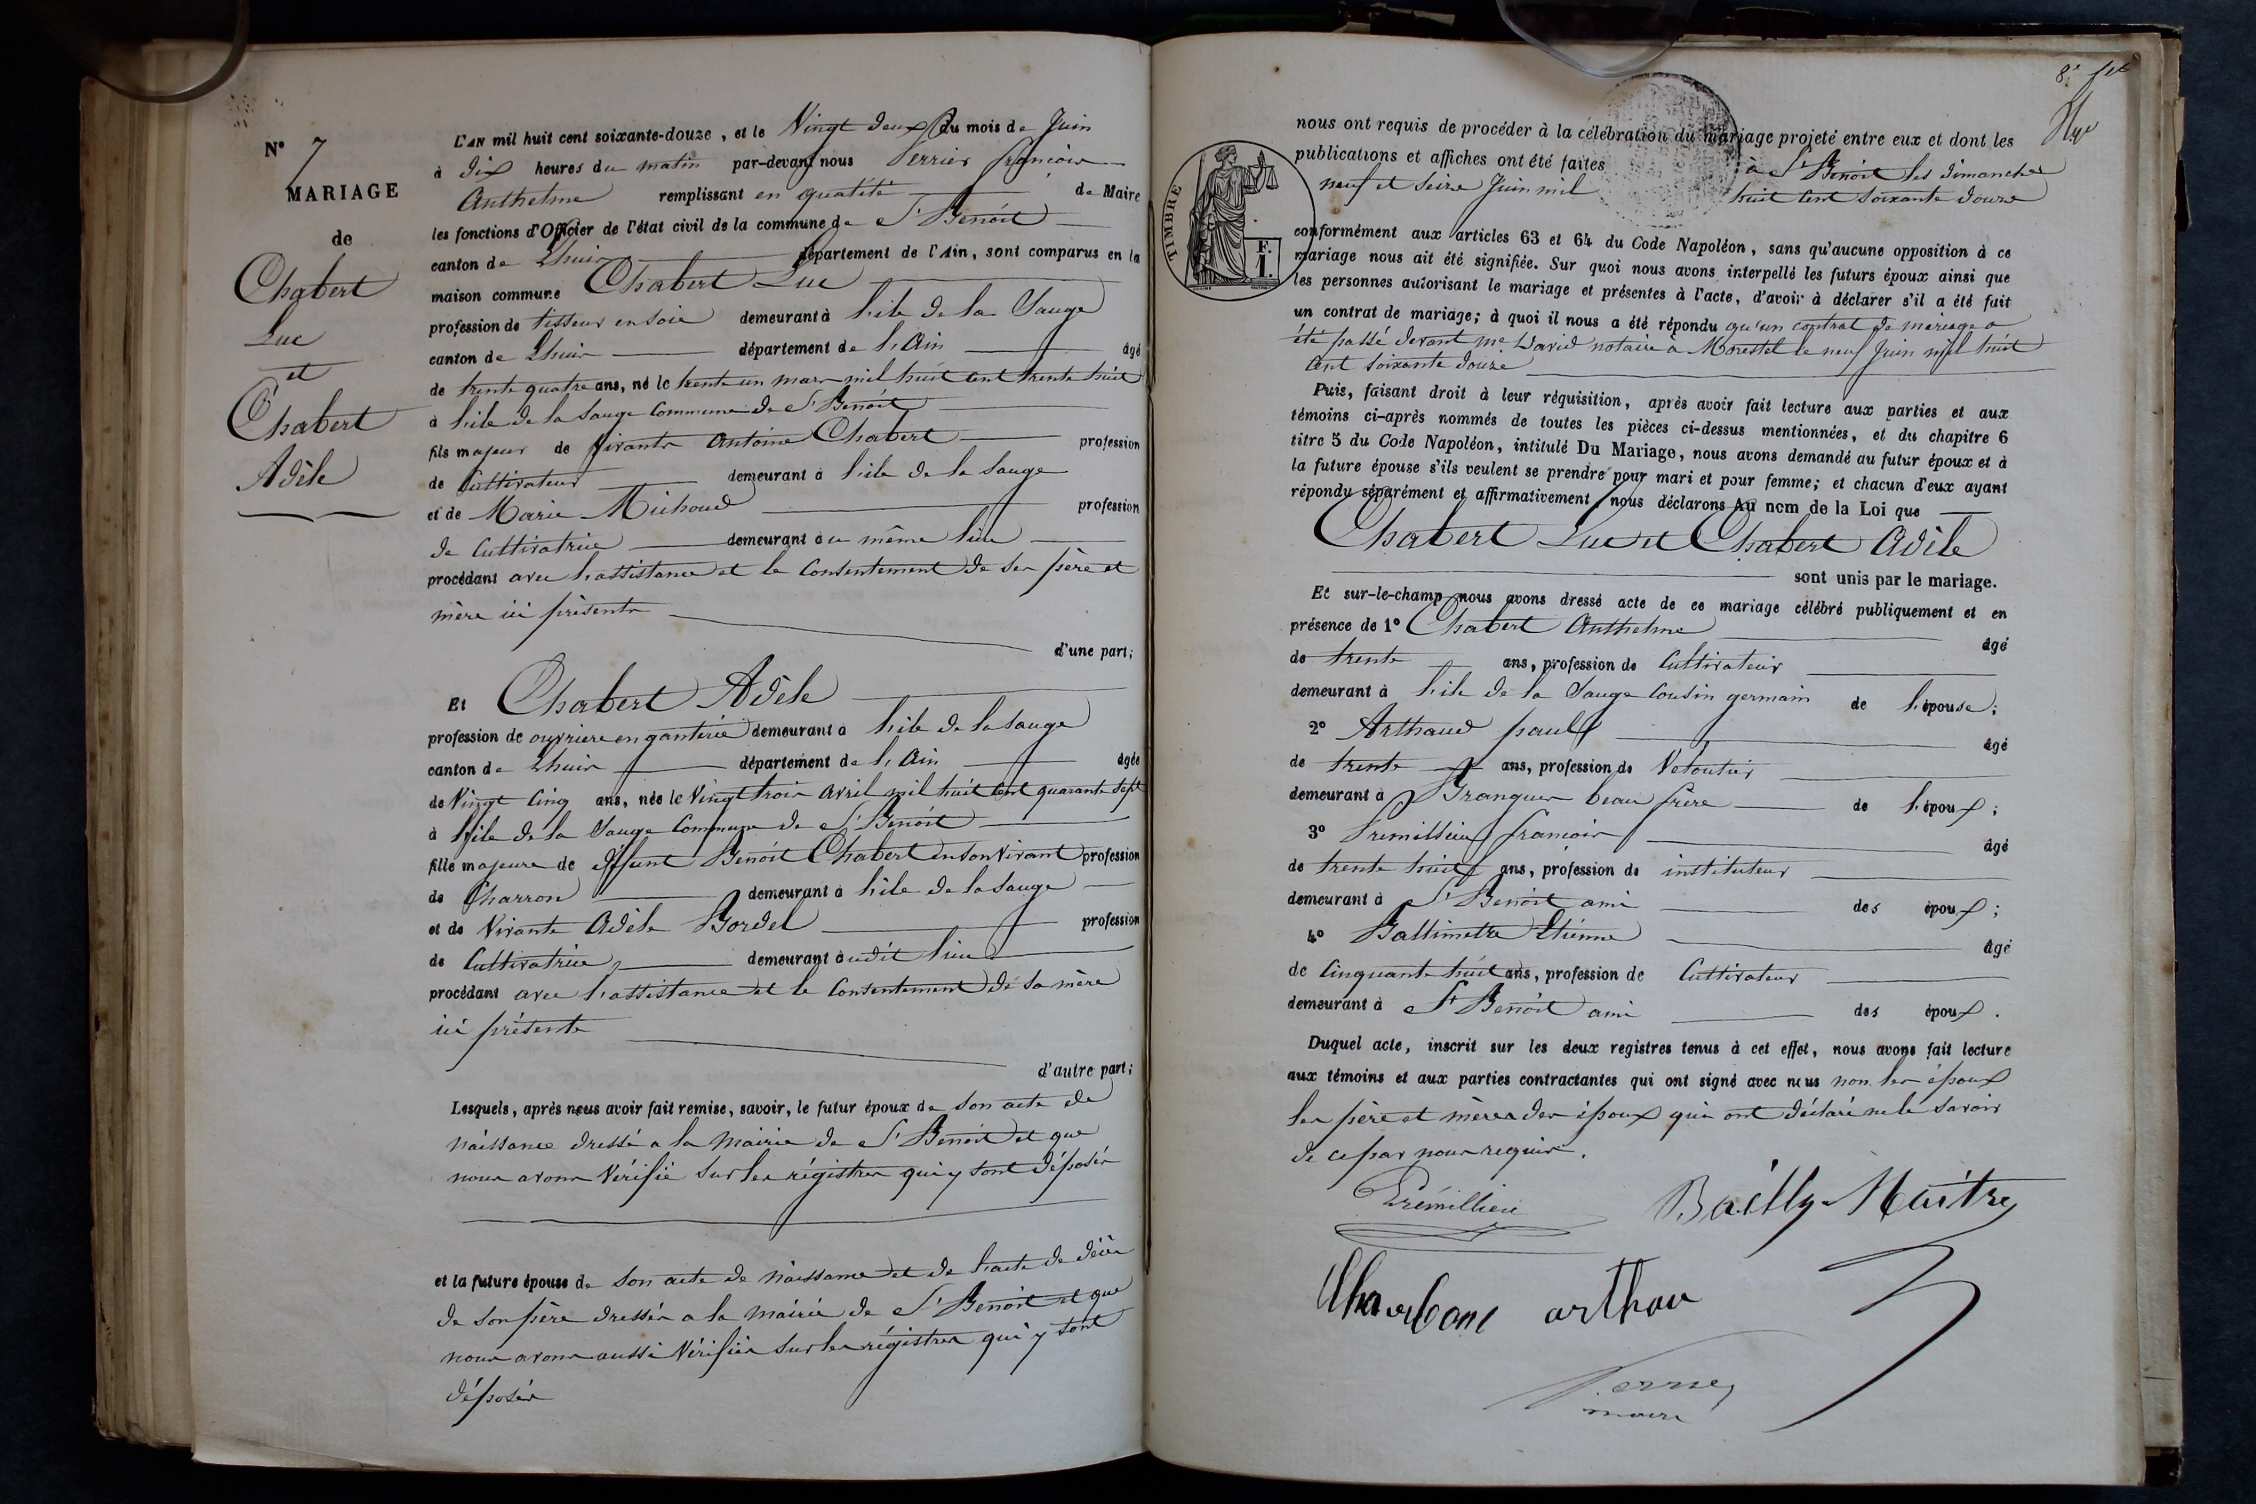 N° 7
MARIAGE
de
Chabert
Luc
et
Chabert
Adèle
L'AN mil huit cent soixante-douze, et le Vingt deux du mois de Juin
à dix heures du matin par-devant nous Perrier françois
Anthelme remplissant en qualité de Maire
les fonctions d'Officier de l'état civil de la commune de St Benoit
canton de Lhuis département de l'Ain, sont comparus en la
maison commune Chabert Luc
profession de tisseur en soie demeurant à l'ile de la Sauge
canton de Lhuis département de l'Ain âgé
de trente quatre ans, né le trente un mars mil huit cent trente huit
à l'ile de la Sauge Commune de St Benoit
fils majeur de vivants Antoine Chabert profession
de Cultivateur demeurant à l'ile de la Sauge
et de Marie Michoud profession
de Cultivatrice demeurant au même lieu
procédant avec l'assistance et le Consentement de ses père et
mère ici présents
d'une part;
Et Chabert Adèle
profession de ouvriere en ganterie demeurant à l'ile de la Sauge
canton de Lhuis département de l'Ain âgée
de Vingt Cinq ans, née le Vingt trois Avril mil huit cent quarante sept
à l'ile de la Sauge Commune de St Benoit
fille majeure de défunt Benoit Chabert en son vivant profession
de Charron demeurant à l'ile de la Sauge
et de Vivante Adèle Bordel profession
de Cultivatrice demeurant audit lieu
procédant avec l'assistance et le Consentement de sa mère
ici présente
d'autre part;
Lesquels, après nous avoir fait remise, savoir, le futur époux de son acte de
naissance dressé a la Mairie de St Benoit et que
nous avons Vérifié sur les régistres qui y sont déposés
et la future épouse de son acte de naissance et de l'acte de décès
de son père dressés a la mairie de St Benoit et que
nous avons aussi Vérifiés sur les régistres qui y sont
déposés
8e
nous ont requis de procéder à la célébration du mariage projeté entre eux et dont les
publications et affiches ont été faites à St Benoit les dimanches
neuf et seize Juin mil huit cent soixante douze
TIMBRE
F.
1.
conformément aux articles 63 et 64 du Code Napoléon, sans qu'aucune opposition à ce
mariage nous ait été signifiée. Sur quoi nous avons interpellé les futurs époux ainsi que
les personnes autorisant le mariage et présentes à l'acte, d'avoir à déclarer s'il a été fait
un contrat de mariage; à quoi il nous a été répondu qu'un contrat de mariage a
été passé devant me David notaire à Morestel le neuf Juin mil huit
Cent soixante douze
Puis, faisant droit à leur réquisition, après avoir fait lecture aux parties et aux
témoins ci-après nommés de toutes les pièces ci-dessus mentionnées, et du chapitre 6
titre 5 du Code Napoléon, intitulé Du Mariage, nous avons demandé au futur époux et à
la future épouse s'ils veulent se prendre pour mari et pour femme; et chacun d'eux ayant
répondu séparément et affirmativement, nous déclarons Au nom de la Loi que
Chabert Luc et Chabert Adèle
sont unis par le mariage.
Et sur-le-champ nous avons dressé acte de ce mariage célébré publiquement et en
présence de 1° Chabert Anthelme âgé
de trente ans, profession de Cultivateur
demeurant à l'ile de la Sauge Cousin germain de l'épouse;
2° Arthaud paul âgé
de trente ans, profession de Veloutier
demeurant à Brangues beau frère de l'époux;
3° Prémillieu françois âgé
de trente huit ans, profession de instituteur
demeurant à St Benoit ami des époux;
4° Etienne âgé
de Cinquante huit ans, profession de Cultivateur
demeurant à St Benoit ami des époux.
Duquel acte, inscrit sur les deux registres tenus à cet effet, nous avons fait lecture
aux témoins et aux parties contractantes qui ont signé avec nous non les époux
les père et mères des époux qui ont déclaré ne le savoir
de ce par nous requis.
Prémillieu
Bailly-Maitre
arthau
maire